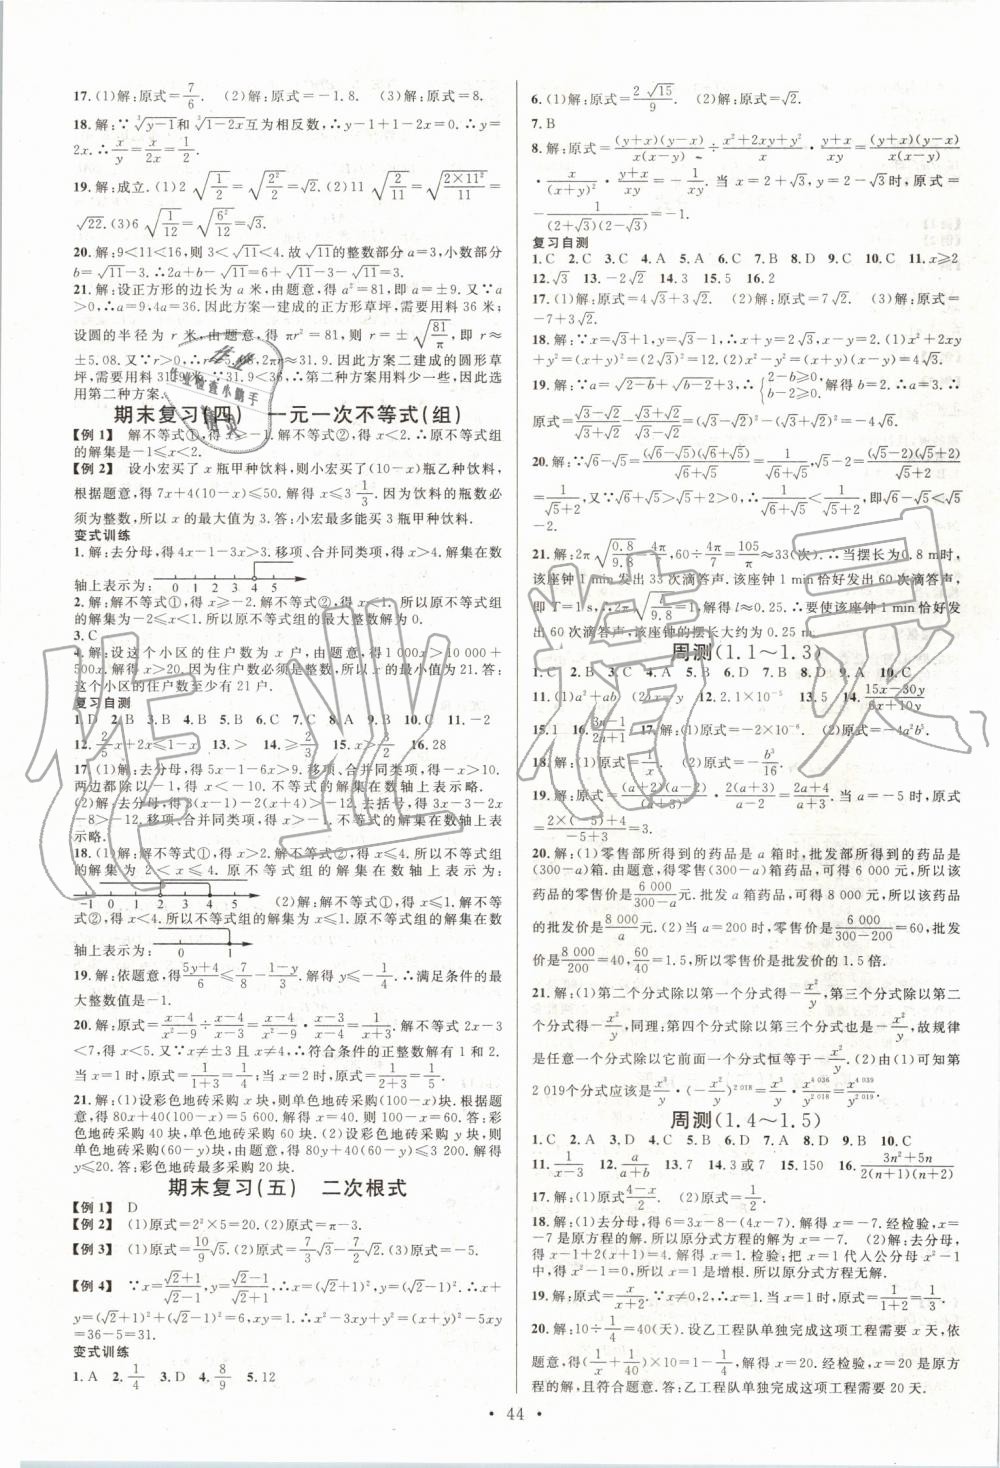 17. (1)解:原式=7/6. (2)解:原式=-1.8. (3)解:原式=8.
18. 解:∵∛(y-1)和∛(1-2x)互为相反数,∴y-1+1-2x=0.∴y=
2x.∴x/y=x/2x=1/2.
19. 解:成立.(1)2√(1/2)=√(2²/2)=√2.(2)11√(2/11)=√((2×11²)/11)=
√22.(3)6√(1/12)=√(6²/12)=√3.
20. 解:9<11<16,则3<√11<4.故√11的整数部分a=3,小数部分
b=√11-3.∴2a+b=6+√11-3=3+√11.
21. 解:设正方形的边长为a米,由题意,得a²=81,即a=±9.又∵a
>0,∴a=9,4a=36.因此方案一建成的正方形草坪,需要用料36米;
设圆的半径为r米,由题意,得πr²=81,则r=±√(81/π),即r≈
±5.08.又∵r>0,∴r≈5.08,2πr≈31.9.因此方案二建成的圆形草
坪,需要用料31.9米.∵31.9<36,∴第二种方案用料少一些,因此选
用第二种方案.
期末复习(四) 一元一次不等式(组)
【例1】 解不等式①,得x≥-1.解不等式②,得x<2.∴原不等式组
的解集是-1≤x<2.
【例2】 设小宏买了x瓶甲种饮料,则小宏买了(10-x)瓶乙种饮料,
根据题意,得7x+4(10-x)≤50.解得x≤3 1/3.因为饮料的瓶数必
须为整数,所以x的最大值为3.答:小宏最多能买3瓶甲种饮料.
变式训练
1. 解:去分母,得4x-1-3x>3.移项、合并同类项,得x>4.解集在数
轴上表示为: -1 0 1 2 3 4 5 6
2. 解:解不等式①,得x≥-2.解不等式②,得x<1.所以原不等式组
的解集为-2≤x<1.所以不等式组的最大整数解为0.
3. C
4. 解:设这个小区的住户数为x户,由题意,得1 000x>10 000+
500x.解得x>20.因为住户数必须是整数,所以x的最小值为21.答:
这个小区的住户数至少有21户.
复习自测
1. D 2. B 3. B 4. B 5. B 6. C 7. C 8. A 9. B 10. C 11. -2
12. 2/5x+2x≤1-x 13. > 14. ≥3 15. x>3/2 16. 28
17. (1)解:去分母,得5x-1-6x>9.移项、合并同类项,得-x>10.
两边都除以-1,得x<-10.不等式的解集在数轴上表示略.
(2)解:去分母,得3(x-1)-2(x+4)>-12.去括号,得3x-3-2x
-8>-12.移项、合并同类项,得x>-1.不等式的解集在数轴上表
示略.
18. (1)解:解不等式①,得x>2.解不等式②,得x≤4.原不等式组
的解集为2<x≤4.原不等式组的解集在数轴上表示为:
-1 0 1 2 3 4 5 (2)解:解不等式①,得x≤1.解不等
式②,得x<4.所以不等式组的解集为x≤1.原不等式组的解集在数
轴上表示为: 0 1
19. 解:依题意,得(5y+4)/6≤7/8-(1-y)/3.解得y≤-1/4.∴满足条件的最
大整数值是-1.
20. 解:原式=(x-4)/(x²-9)÷(x-4)/(x-3)=(x-4)/(x²-9)·(x-3)/(x-4)=1/(x+3).解不等式2x-3
<7,得x<5.又∵x≠±3且x≠4,∴符合条件的正整数解有1和2.
当x=1时,原式=1/(1+3)=1/4;当x=2时,原式=1/(2+3)=1/5.
21. 解:(1)设彩色地砖采购x块,则单色地砖采购(100-x)块.根据题
意,得80x+40(100-x)=5 600.解得x=40.则100-x=60.答:彩
色地砖采购40块,单色地砖采购60块.(2)设彩色地砖采购y块,则
单色地砖采购(60-y)块,由题意,得80y+40(60-y)≤3 200.解得
y≤20.答:彩色地砖最多采购20块.
期末复习(五) 二次根式
【例1】 D
【例2】 (1)原式=2²×5=20.(2)原式=π-3.
【例3】 (1)原式=10/9√5.(2)原式=7/2√3-7/2√2.(3)原式=-5.
【例4】 ∵x=(√2+1)/(√2-1),y=(√2-1)/(√2+1),∴x=(√2+1)²,y=(√2-1)²,∴x+
y=(√2+1)²+(√2-1)²=6,xy=1.∴x²-3xy+y²=(x+y)²-5xy
=36-5=31.
变式训练
1. A 2. 1/4 3. D 4. 8/9 5. 12
6. (1)解:原式=2√15/9. (2)解:原式=√2.
7. B
8. 解:原式=(y+x)(y-x)/x(x-y)÷(x²+2xy+y²)/x·(y+x)/xy=(y+x)(y-x)/x(x-y)
·x/(x+y)²·(y+x)/xy=-1/xy.当x=2+√3,y=2-√3时,原式=
-1/((2+√3)(2-√3))=-1.
复习自测
1. C 2. C 3. C 4. A 5. A 6. C 7. B 8. D 9. D 10. C 11. x≥2
12. √3 13. -2√2 14. 3 15. 5 16. 2
17. (1)解:原式=4√3+3√2. (2)解:原式=7√2. (3)解:原式=
-7+3√2.
18. 解:∵x=√3+1,y=√3-1,∴x+y=2√3,x-y=2.(1)x²+2xy
+y²=(x+y)²=(2√3)²=12.(2)x²-y²=(x+y)(x-y)=4√3.
19. 解:∵a=√(2-b)+√(b-2)+3,∴{2-b≥0, b-2≥0.解得b=2.∴a=3.∴
原式=(√3-√2)/(√3+√2)=(√3-√2)²/((√3+√2)(√3-√2))=5-2√6.
20. 解:∵√6-√5=(√6-√5)(√6+√5)/(√6+√5)=1/(√6+√5),√5-2=(√5-2)(√5+2)/(√5+2)
=1/(√5+2),又∵√6+√5>√5+2,∴1/(√6+√5)<1/(√5+2),即√6-√5<√5
-2.
21. 解:2π√(0.8/9.8)=4π/7,60÷4π/7=105/π≈33(次).∴当摆长为0.8 m时,
该座钟1 min发出33次滴答声.该座钟1 min恰好发出60次滴答声,
即T=1 s,∴2π√(l/9.8)=1.解得l≈0.25.∴要使该座钟1 min恰好发
出60次滴答声,该座钟的摆长大约为0.25 m.
周测(1.1～1.3)
1. C 2. B 3. C 4. A 5. B 6. D 7. B 8. A 9. D 10. C
11. (1)a²+ab (2)x 12. 2.1×10⁻⁵ 13. 5 14. (15x-30y)/(6x+10y)
15. 1 16. (3n-1)/(2n+1) 17. 解:(1)原式=-2×10⁻⁶. (2)原式=-4a²b⁵.
18. 解:(1)原式=1/x. (2)原式=-b³/16.
19. 解:原式=2(a+4)/(a+3)(a-2)·(a-2)/1=2(a+4)/(a+3)=(2a+4)/(a+3).当a=-5时,原式
=2×(-5)+4/(-5+3)=3.
20. 解:(1)零售部所得到的药品是a箱时,批发部所得到的药品是
(300-a)箱.由题意,得零售药品a箱,可得6 000元,所以该药
品的零售价是6 000/(300-a)元.批发a箱药品,可得8 000元,所以该药品
的批发价是8 000/a元.(2)当a=200时,零售价是6 000/(300-200)=60,批发
价是8 000/200=40,60/40=1.5,所以零售价是批发价的1.5倍.
21. 解:(1)第二个分式除以第一个分式得-x²/y,第三个分式除以第二
个分式得-x²/y,同理:第四个分式除以第三个分式也是-x²/y,故规律
是任意一个分式除以它前面一个分式恒等于-x²/y.(2)由(1)可知第
2 019个分式应该是x³/y·(-x²/y)²⁰¹⁸=x³/y·x⁴⁰³⁶/y²⁰¹⁸=x⁴⁰³⁹/y²⁰¹⁹.
周测(1.4～1.5)
1. C 2. A 3. D 4. B 5. C 6. D 7. A 8. D 9. B 10. C
11. 1/(x-3) 12. a/(a+b) 13. 7 14. 3或7 15. 1 16. (3n²+5n)/(2(n+1)(n+2))
17. 解:(1)原式=(4-x)/x. (2)原式=1/2.
18. 解:(1)去分母,得6=3x-8-(4x-7).解得x=-7.经检验,x
=-7是原方程的解.所以原分式方程的解为x=-7.(2)解:去分母,
得2(x-1)+2(x+1)=4.解得x=1.检验:把x=1代入公分母x²-1
中,得x²-1=0.∴x=1是增根.所以原分式方程无解.
19. 解:原式=x/(x+2).∵x≠0,2,∴当x=1时,原式=1/(1+2)=1/3.
20. 解:10÷1/4=40(天).设乙工程队单独完成这项工程需要x天,依
题意,得(1/x+1/40)×10=1-1/4.解得x=20.经检验,x=20是原方
程的解,且符合题意.答:乙工程队单独完成这项工程需要20天.
· 44 ·